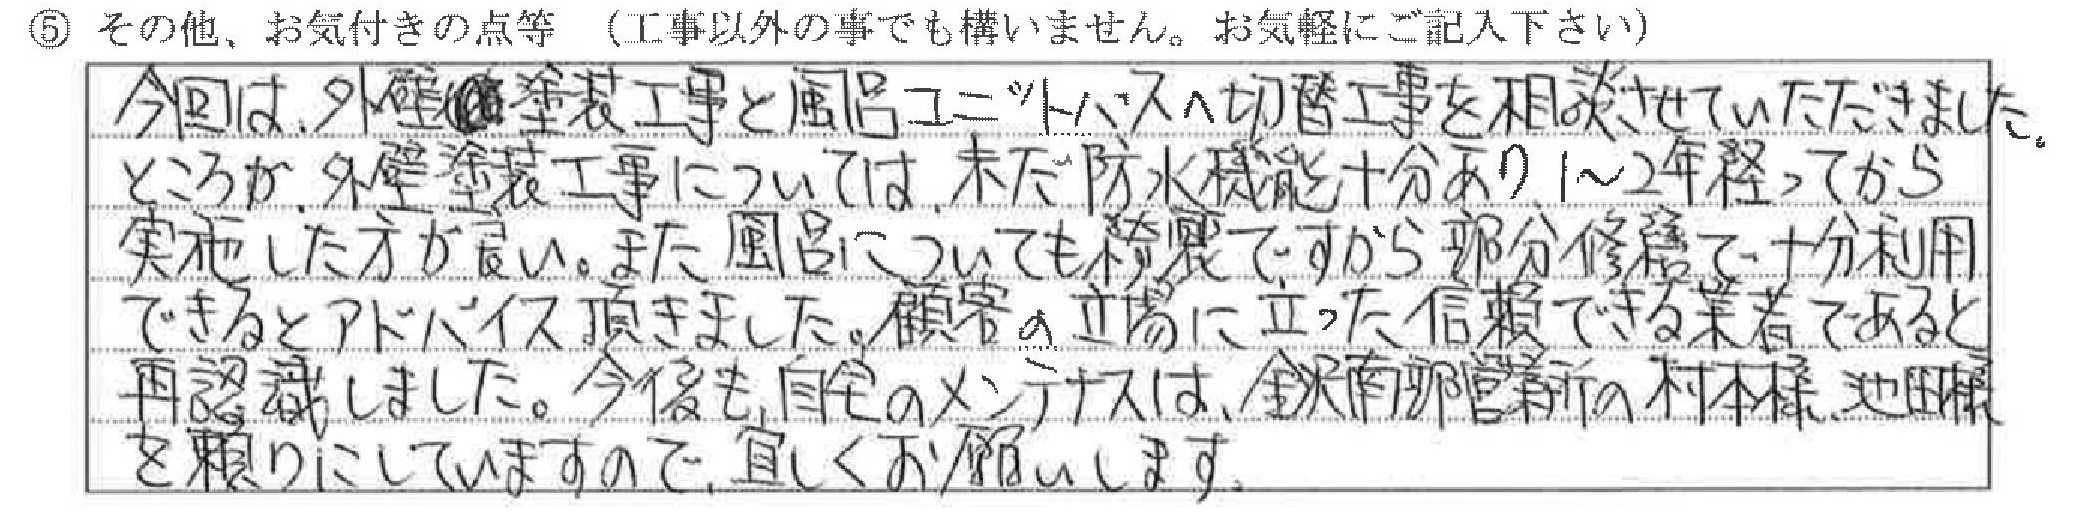 ⑤ その他、お気付きの点等 (工事以外の事でも構いません。お気軽にご記入下さい)
今回は、外壁塗装工事と風呂ユニットバスへ切替工事を相談させていただきました。
ところが、外壁塗装工事については、未だ防水機能十分あり、1〜2年経ってから
実施した方が良い。また風呂についても綺麗ですから部分修繕で十分利用
できるとアドバイス頂きました。顧客の立場に立った信頼できる業者であると
再認識しました。今後も、自宅のメンテナスは、金沢南部営業所の村本様、池田様
を頼りにしていますので、宜しくお願いします。